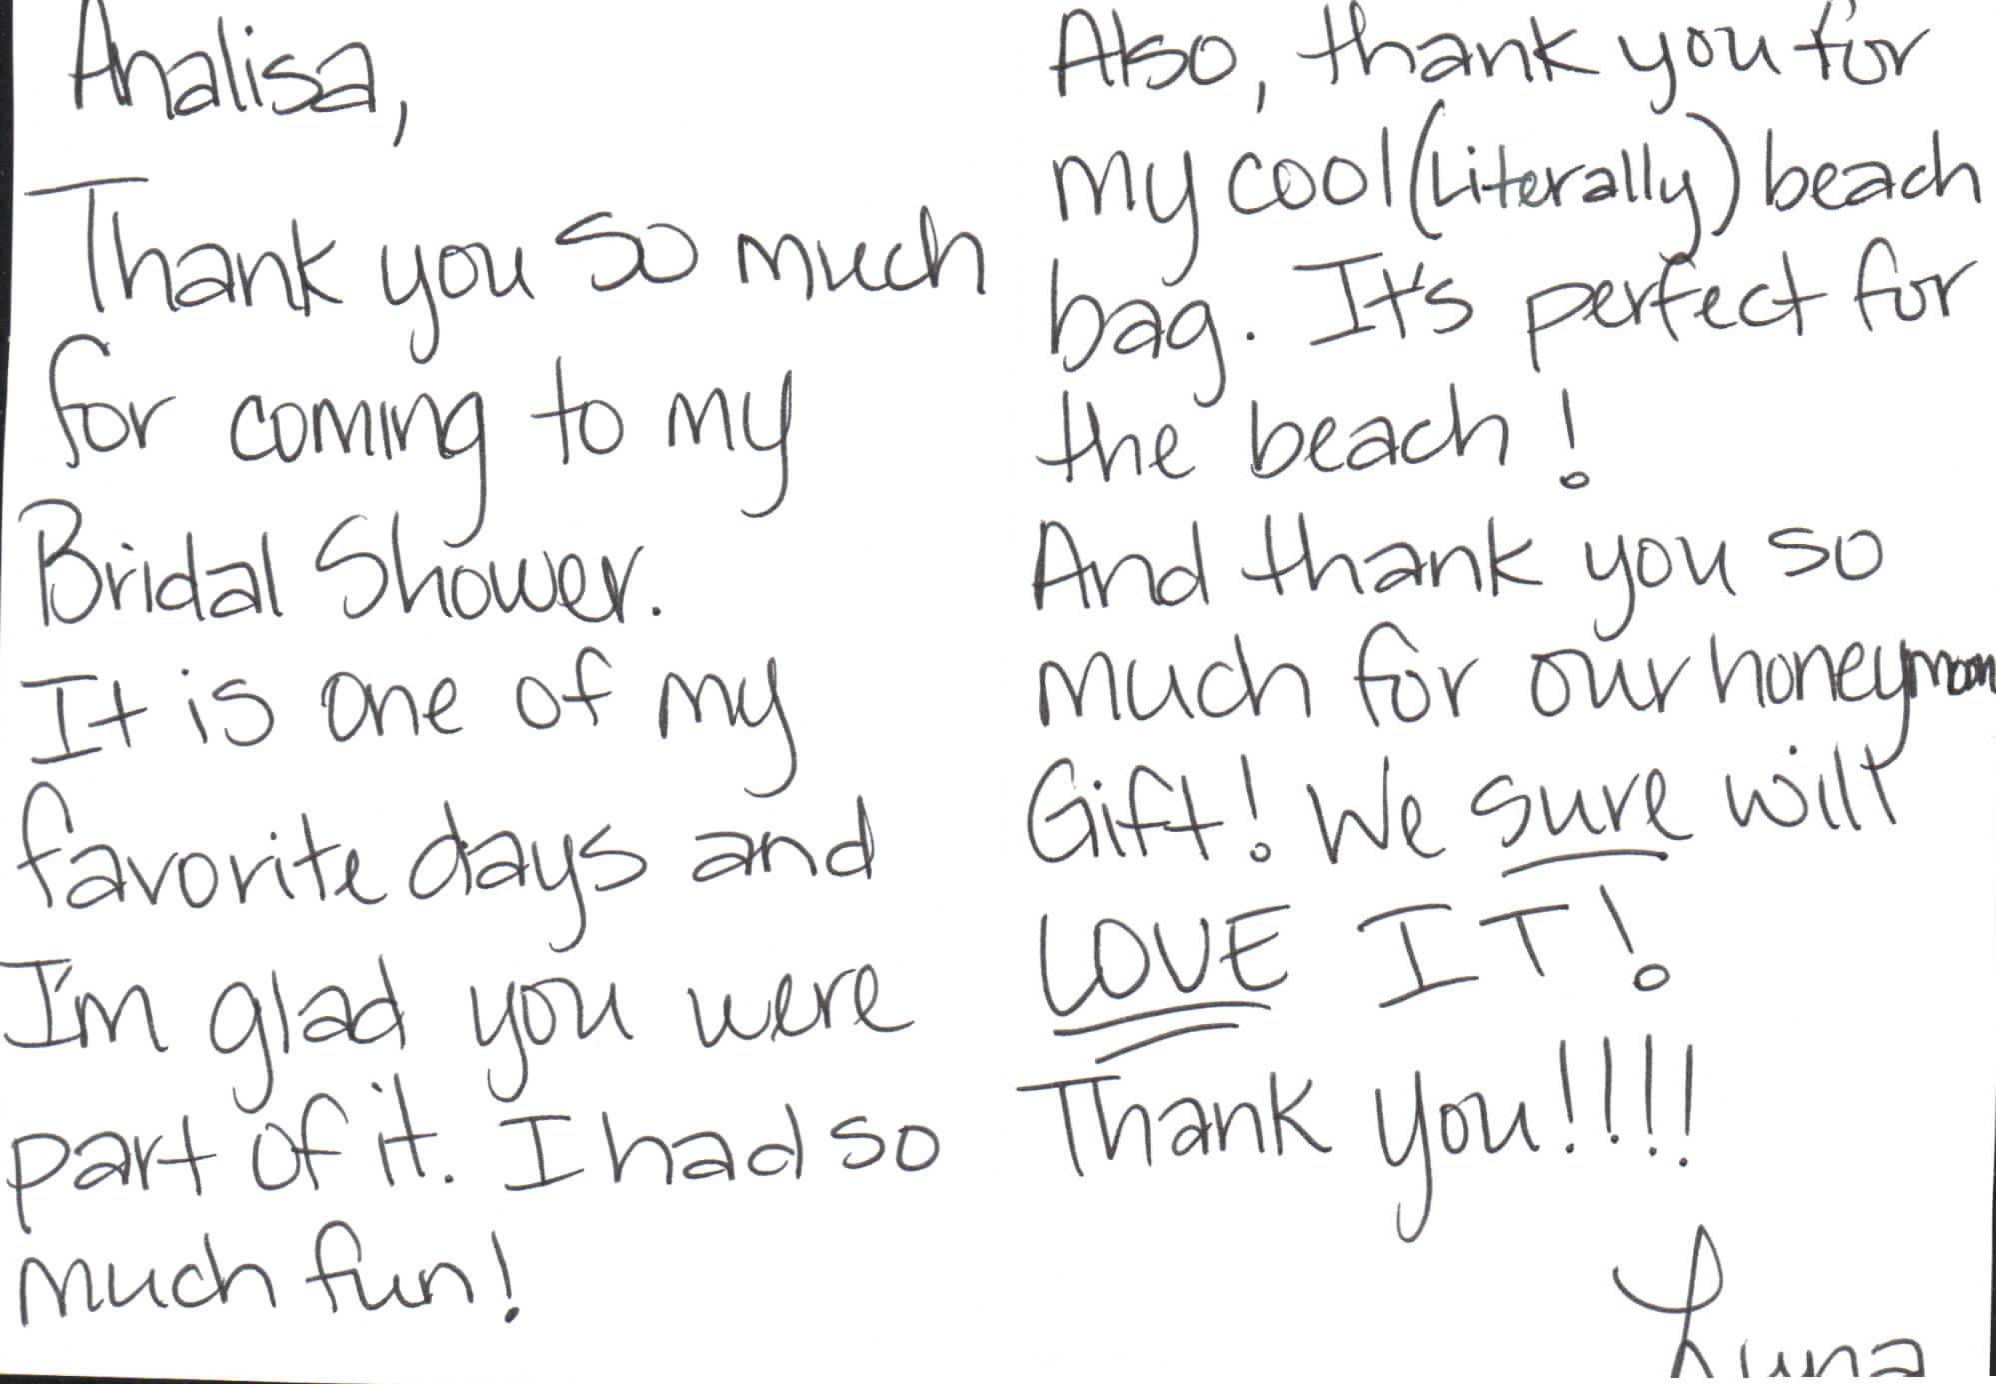 Analisa,
Thank you so much
for coming to my
Bridal Shower.
It is one of my
favorite days and
I'm glad you were
part of it. I had so
much fun!
Also, thank you for
my cool (Literally) beach
bag. It's perfect for
the beach!
And thank you so
much for our honeymoon
Gift! We sure will
LOVE IT!
Thank you!!!!
Luna